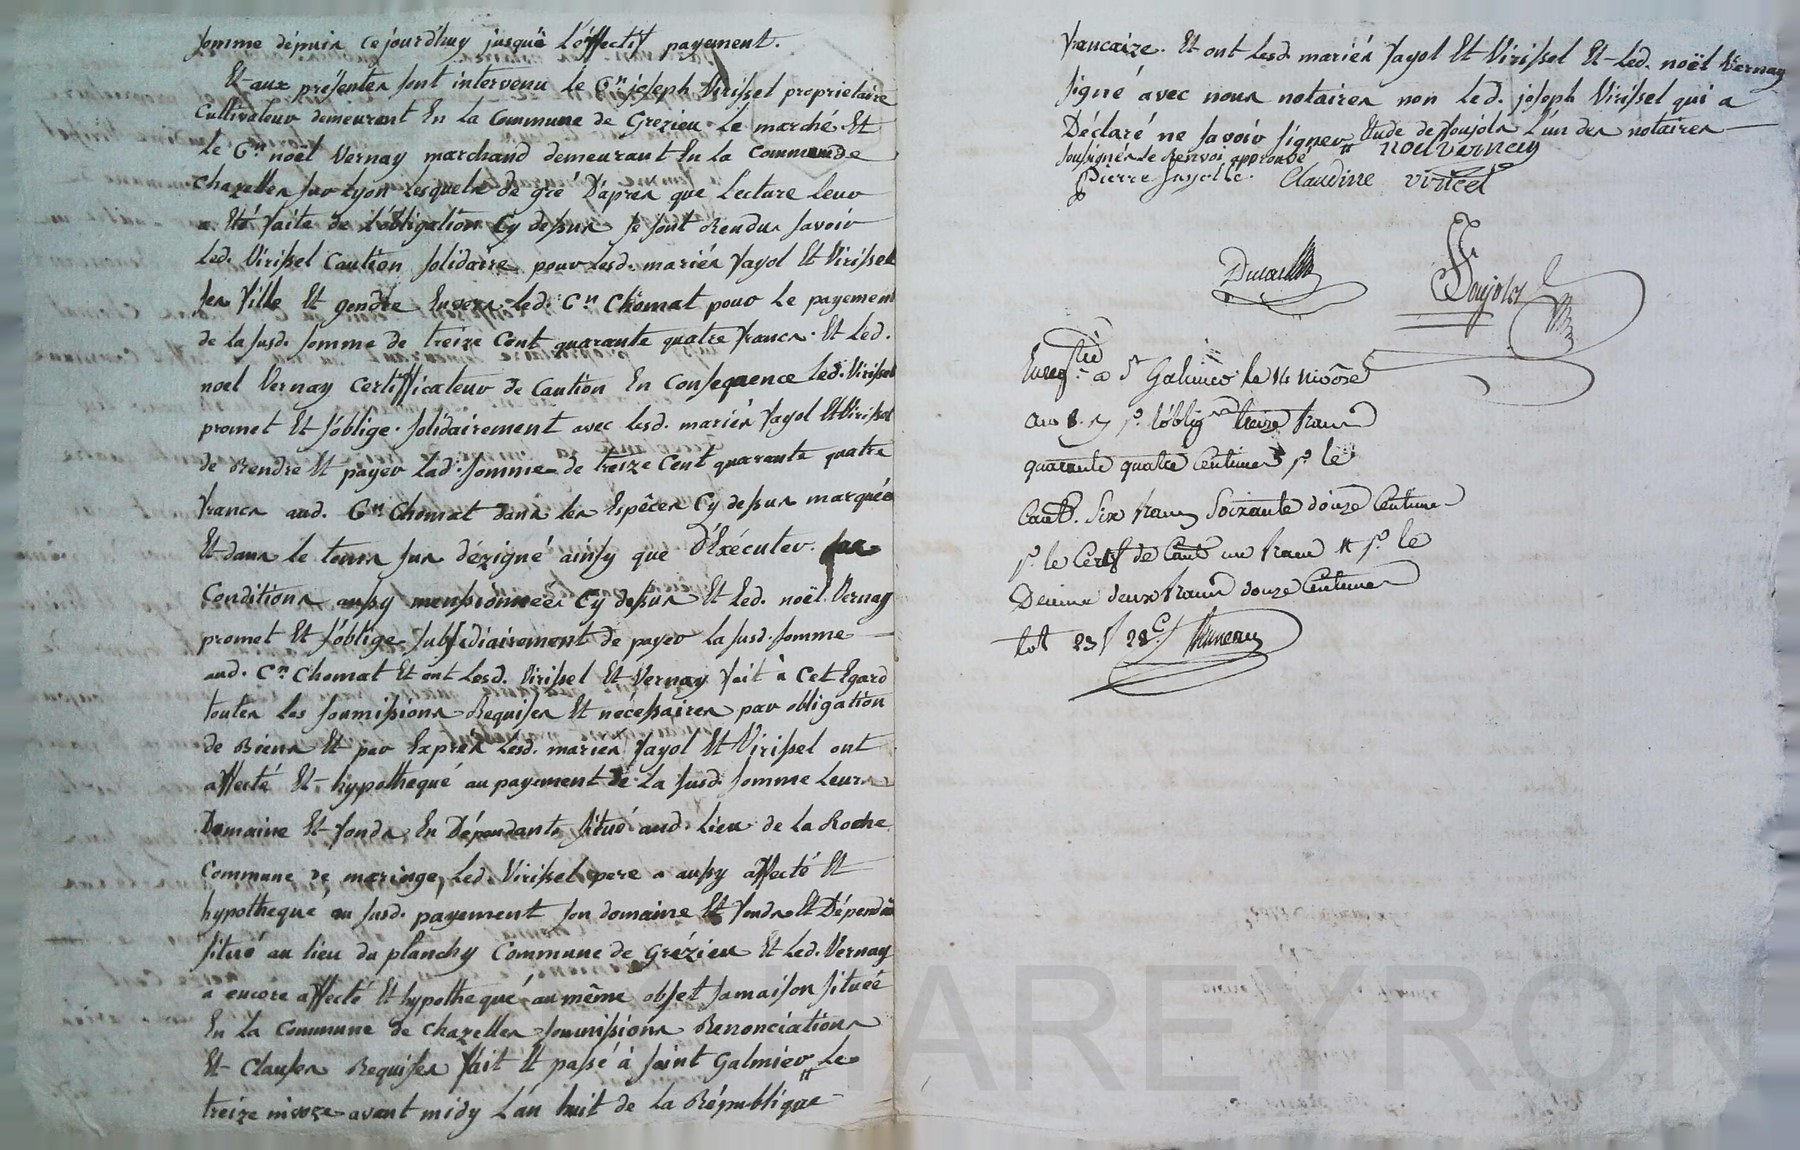 somme dépuis cejourdhuy jusquë L'éffectif payement.
Et aux présentes sont intervenu le C.en joseph Virissel proprietaire
Cultivateur demeurant En La Commune de Grezieu Le marché Et
Le C.en noël Vernay marchand demeurant En la Commune de
chazelles sur Lyon Lesquels de gré D'apres que Lecture leur
a Eté faite de L'óbligation Cy dessus se sont Rendus savoir
Led. Virissel Caution solidaire pour Lesd. mariés fayol Et Virissel
ses fille Et gendre Envers Led. C.en Chomat pour Le payement
de la susd. somme de treize Cent quarante quatre francs. Et Led.
noel Vernay Certifficateur de Caution En Consequence Led. Virissel
promet Et s'oblige solidairement avec Lesd. mariés fayol Et Virissel
de Rendre Et payer Lad. somme de treize Cent quarante quatre
francs aud. C.en Chomat dans les Espêces Cy dessus marquées
Et dans le tems sus dézigné ainsy que D'Exécuter les
Conditions aussy menssionnées Cy dessus Et Led. noël Vernay
promet Et s'óblige subsidiairement de payer la susd. somme
aud. C.en Chomat Et ont Lesd. Virissel Et Vernay fait à Cet Egard
toutes Les soumissions Requises Et nécessaires par obligation
de Biens Et par Exprès Lesd. mariés fayol Et Virissel ont
affecté Et hypothequé au payement de La susd. somme Leurs
Domaine Et fonds En Dépendants situé aud. Lieu de La Roche
Commune de maringe, Led. Virissel pere a aussy affecté Et
hypothequé au susd. payement son domaine Et fonds Et Dépendan
situé au lieu du planchy Commune de Grézieu Et Led. Vernay
a encore affecté Et hypothequé au même objet sa maison située
En La Commune de chazelles soumissions Renonciations
Et Clauses Requises fait Et passé à saint Galmier Le
treize nivoze avant midy L'an huit de la République
francaize. Et ont Lesd. mariés fayol Et Virissel Et Led. noël Vernay
signé avec nous notaires non Led. joseph Virissel qui a
Déclaré ne savoir signer Etude de Soujols L'un des notaires
soussignés Le Renvoi approuvé noel vernay
Pierre fayolle. Claudine viricel
Soujols
Enreg.tré a S.t Galmier le 14 nivôse
an 8. p.r l'óblig.on treize francs
quarante quatre Centimes p.r le
Caut. Six francs Soixante douze Centimes
p.r le Certif de Caut un franc p.r le
Decime deux francs douze Centimes
tot 23f 28c
HAREYRON